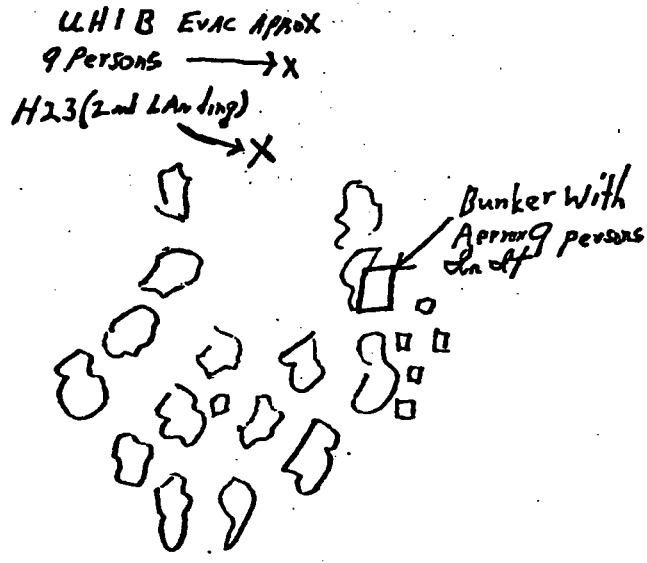 UH1B EVAC APROX
9 Persons X
H23 (2nd LAnding)
X
Bunker With
Aprox 9 persons
In It